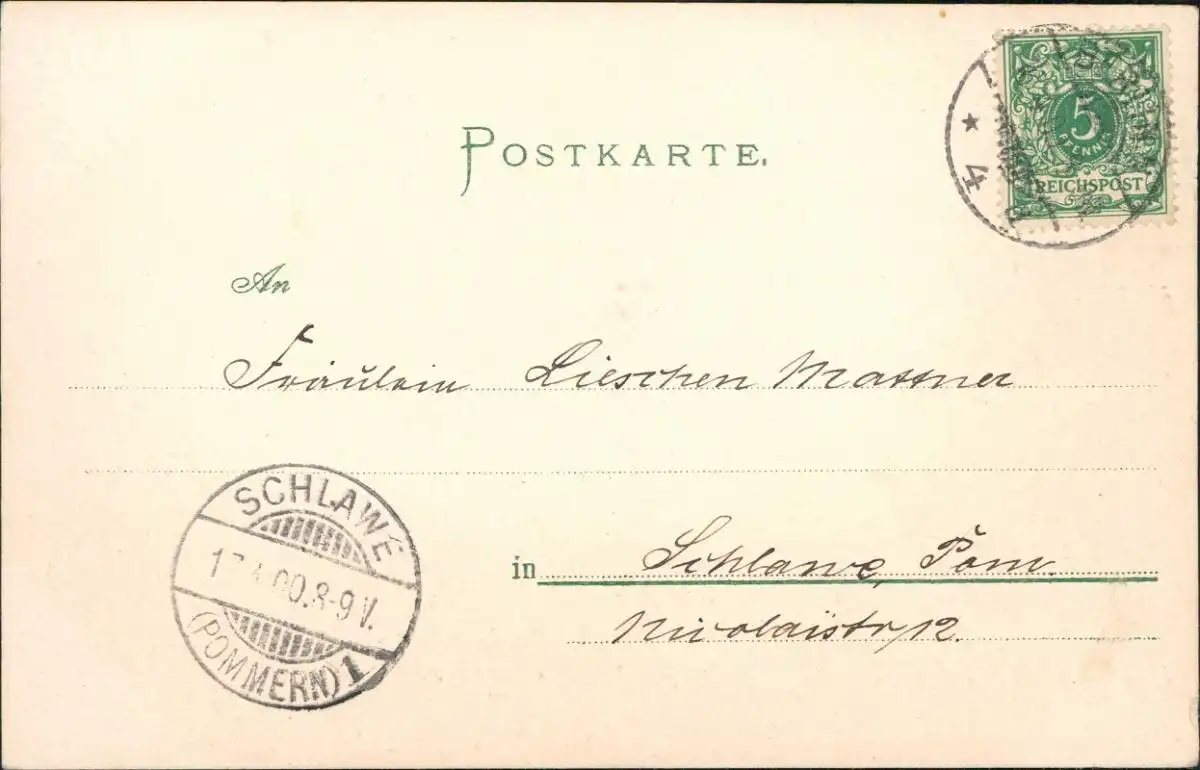 POSTKARTE.
5
PFENNIG
REICHSPOST
* 4
An
Fräulein Lieschen Mattner
SCHLAWE
17.4.00.8-9 V.
(POMMERN) 1
in Schlawe, Pom.
Nicolaistr 12.